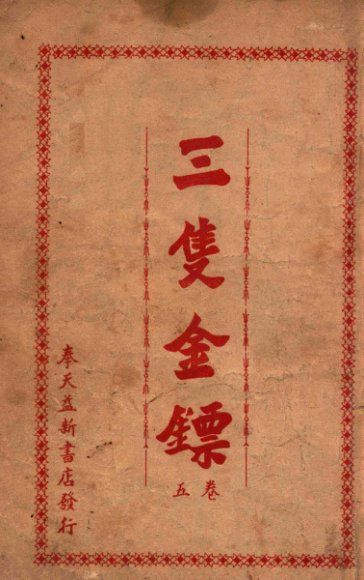 三隻金鏢
卷五
奉天益新書店發行